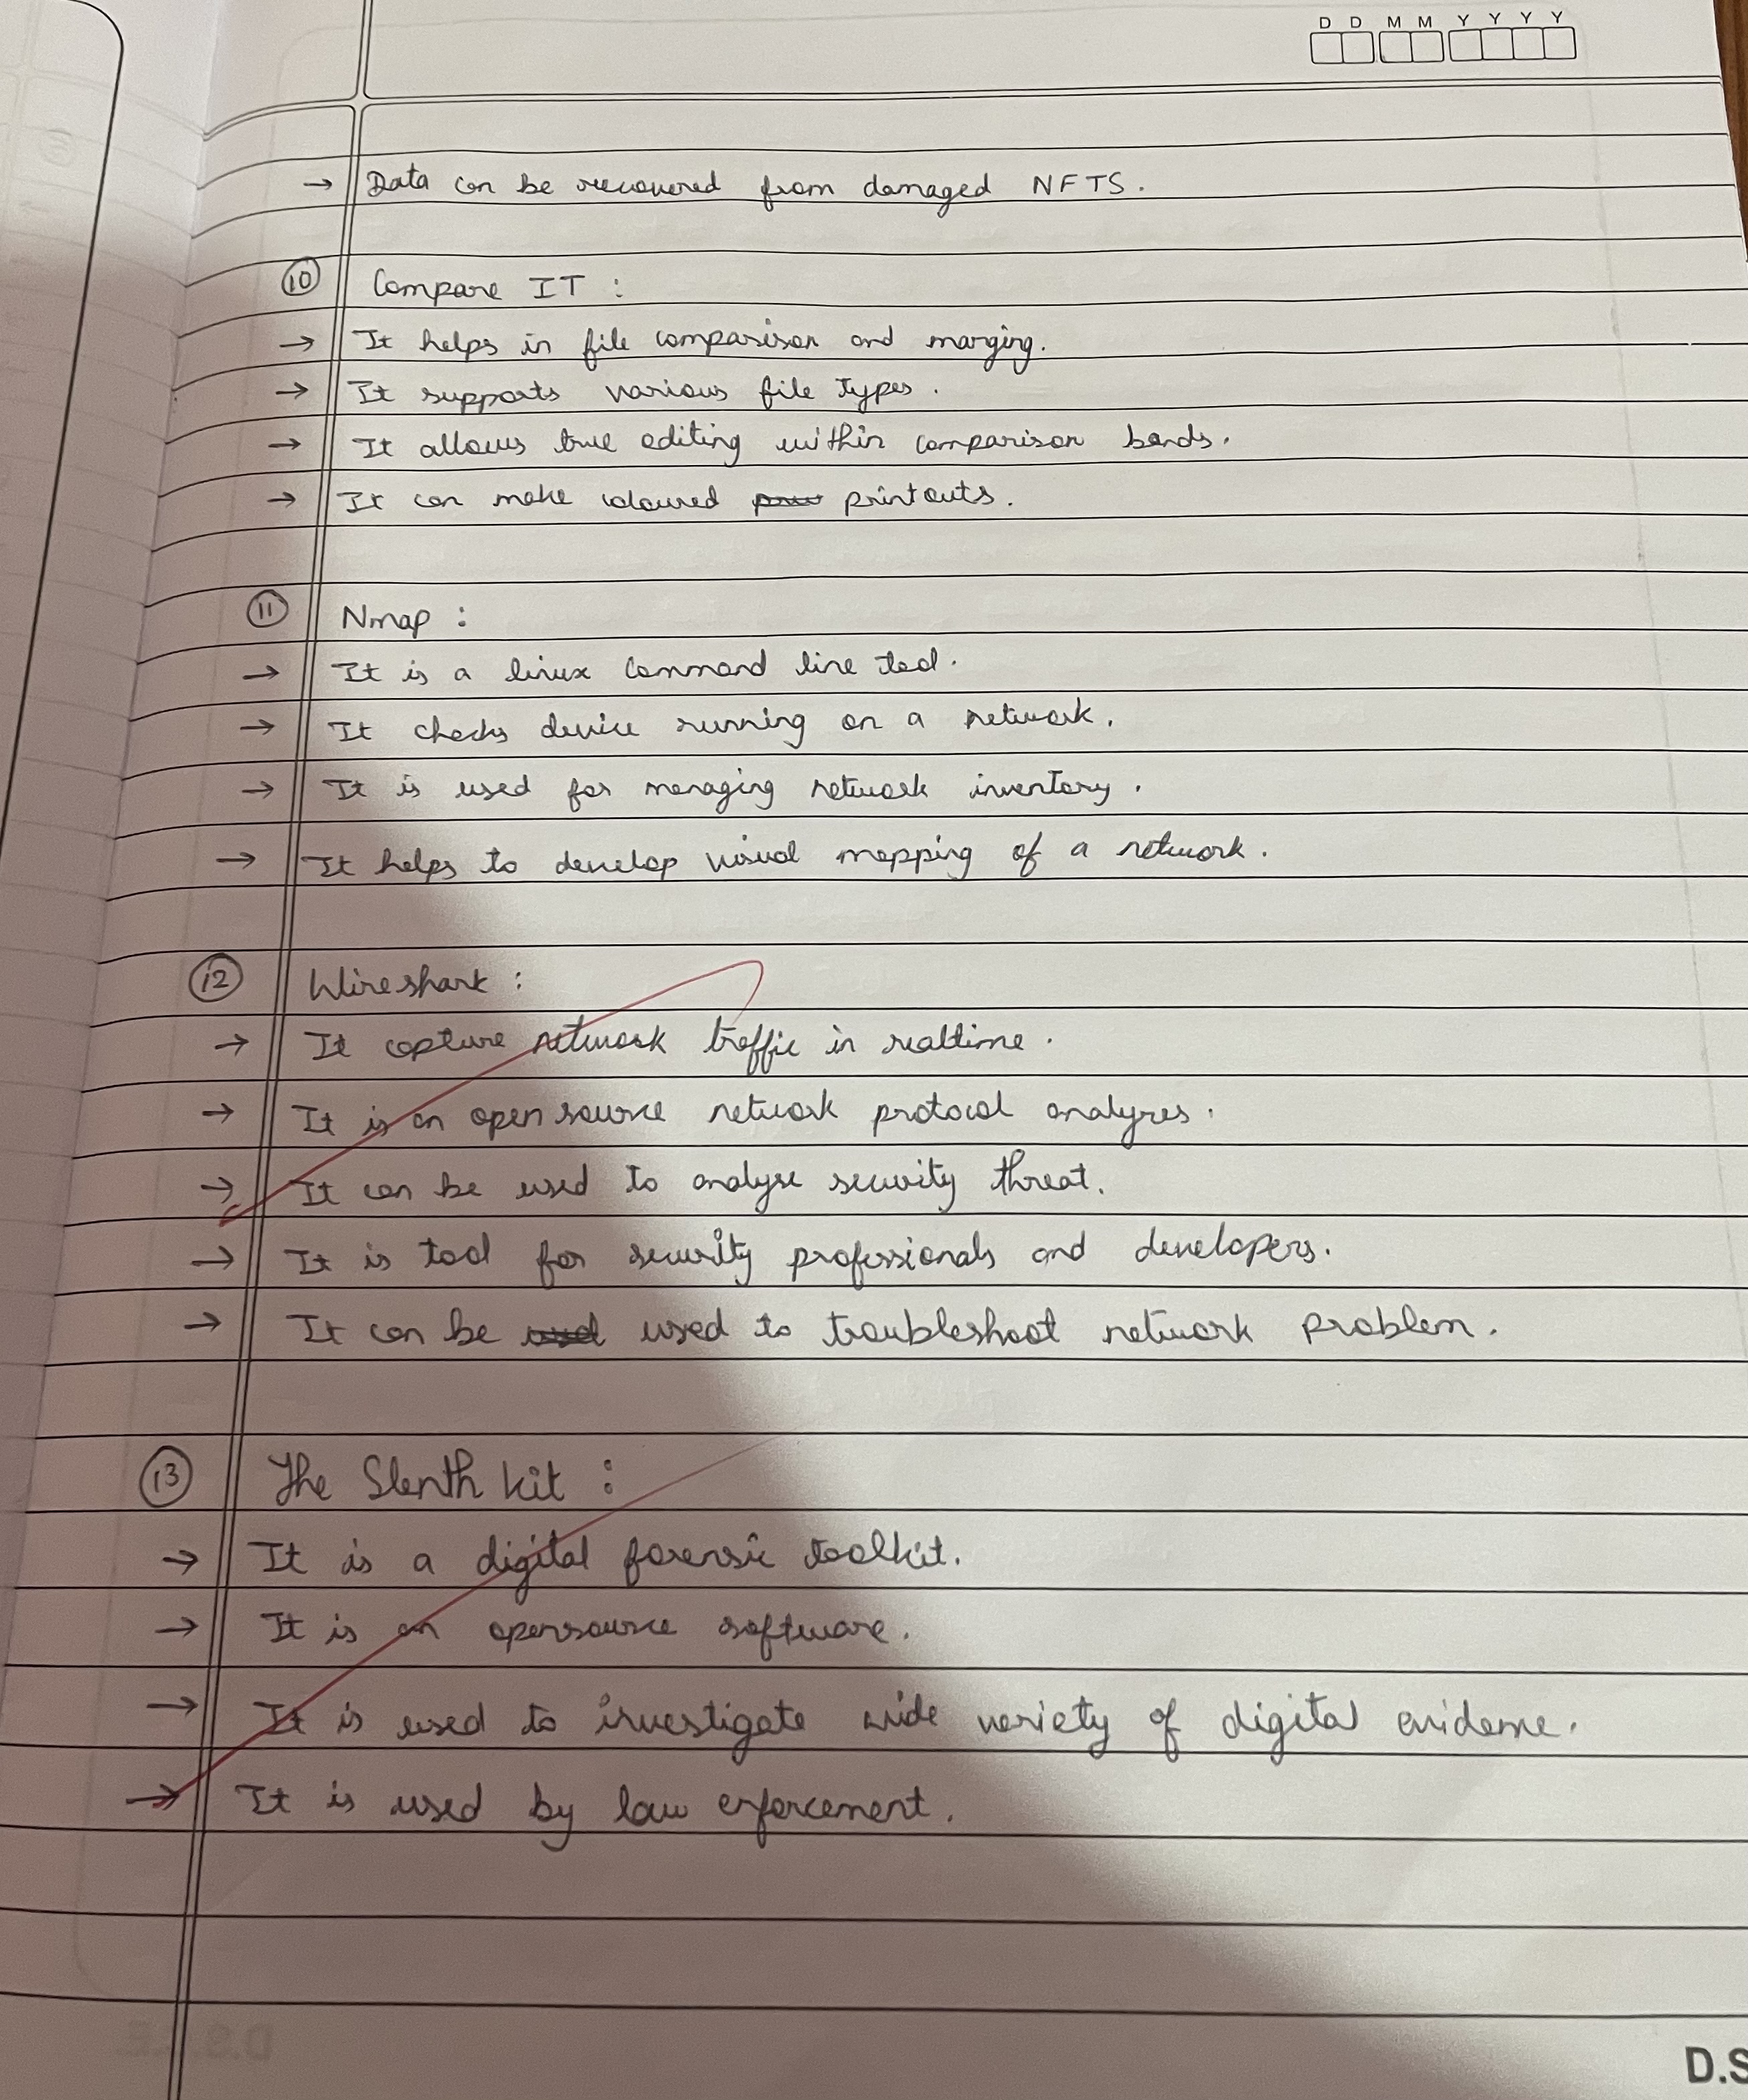 D D M M Y Y Y Y
→ Data can be recovered from damaged NFTS.
10 Compare IT :
→ It helps in file comparison and marging.
→ It supports various file types.
→ It allows true editing within comparison bands.
→ It can make coloured printouts.
11 Nmap :
→ It is a linux command line tool.
→ It checks device running on a network.
→ It is used for managing network inventory.
→ It helps to develop visual mapping of a network.
12 Wireshark :
→ It capture network traffic in realtime.
→ It is an open source network protocol analyres.
→ It can be used to analyse security threat.
→ It is tool for security professionals and developers.
→ It can be used to troubleshoot network problem.
13 The Slenth kit :
→ It is a digital forensic toolkit.
→ It is an opensource software.
→ It is used to investigate wide variety of digital evidence.
→ It is used by law enforcement.
D.S